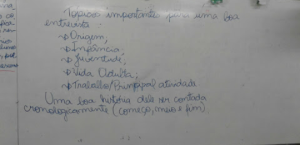 Tópicos importantes para uma boa
entrevista
→ Origem;
→ Infância;
→ Juventude;
→ Vida Adulta;
→ Trabalho/Principal atividade
Uma boa história deve ser contada
cronologicamente (começo, meio e fim)